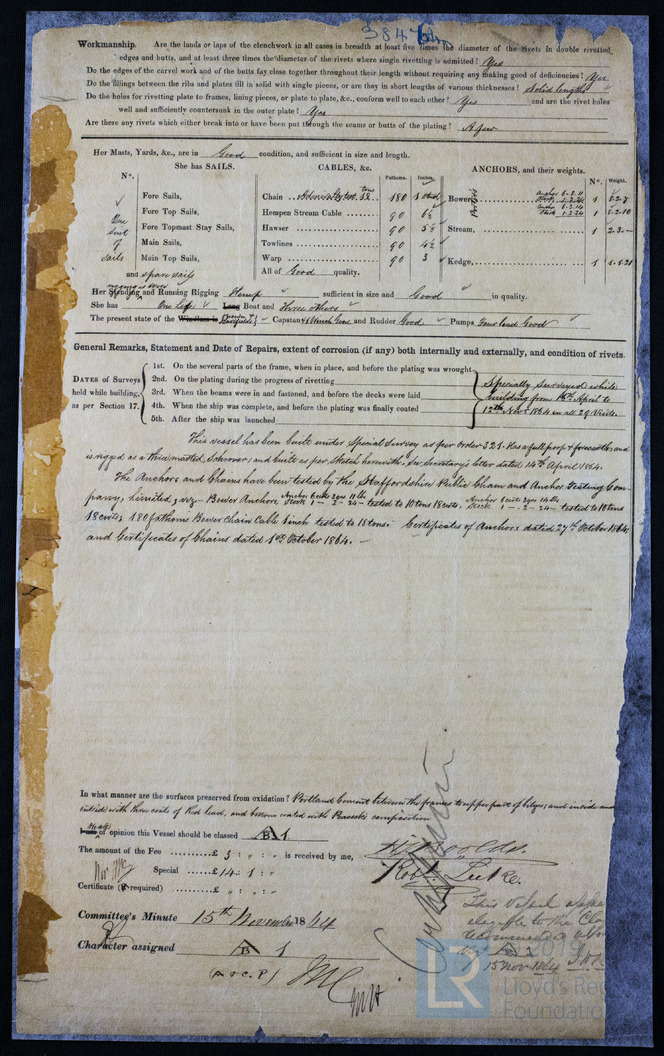 384
Workmanship. Are the lands or laps of the clenchwork in all cases in breadth at least five times the diameter of the rivets in double rivetted
edges and butts, and at least three times the diameter of the rivets where single rivetting is admitted? Yes
Do the edges of the carvel work and of the butts fay close together throughout their length without requiring any making good of deficiencies? Yes
Do the fillings between the ribs and plates fill in solid with single pieces, or are they in short lengths of various thicknesses? Solid lengths
Do the holes for rivetting plate to frames, lining pieces, or plate to plate, &c., conform well to each other? Yes and are the rivet holes
well and sufficiently countersunk in the outer plate? Yes
Are there any rivets which either break into or have been put through the seams or butts of the plating? A few
Her Masts, Yards, &c., are in Good condition, and sufficient in size and length.
She has SAILS. CABLES, &c. ANCHORS, and their weights.
N°. Fathoms. Inches. N°. Weight.
Fore Sails, Chain 180 1 Bowers 1
One Fore Top Sails, Hempen Stream Cable 90 1
suit Fore Topmast Stay Sails, Hawser 90 Stream, 1 2.3.-
of Main Sails, Towlines 90
sails Main Top Sails, Warp 90 3 Kedge, 1
and spare sails All of Good quality.
Her Standing and Running Rigging Hemp sufficient in size and Good in quality.
She has One Life Long Boat and Three others
The present state of the Windlass is Capstan and Rudder Good. Pumps Four and Good
General Remarks, Statement and Date of Repairs, extent of corrosion (if any) both internally and externally, and condition of rivets.
DATES of Surveys held while building, as per Section 17.
1st. On the several parts of the frame, when in place, and before the plating was wrought
2nd. On the plating during the progress of rivetting
3rd. When the beams were in and fastened, and before the decks were laid
4th. When the ship was complete, and before the plating was finally coated
5th. After the ship was launched
Specially Surveyed while
building from 16th April to
12th Nov. 1864 in all 29 Visits.
This vessel has been built under Special Survey as per order 321. Has a full poop & forecastle, and
is rigged as a three masted Schooner, and built as per Sketch herewith, see Secretary's letter dated 14th April 1864.
The Anchors and Chains have been tested by the Staffordshire Public Chain and Anchor Testing Com-
pany, limited; viz. Bower Anchors, Anchor 6 cwts 2 qrs 11 lbs Stock 1 - 2 - 24 - tested to 10 tons 18 cwts. Anchor 6 cwts 2 qrs 14 lbs Stock 1 - 2 - 24 - tested to 10 tons
18 cwts; 180 fathoms Bower Chain Cable 1 inch tested to 18 tons. Certificates of Anchors dated 27th October 1864,
and Certificates of Chains dated 1st October 1864. -
In what manner are the surfaces preserved from oxidation? Portland Cement between the frames to upper part of bilges, and inside and
outside with three coats of Red lead, and bottom coated with Peacock's composition
of opinion this Vessel should be classed A 1
The amount of the Fee £ 3 : " : " is received by me,
Special £ 14 : 1 : "
Certificate (if required) £ " : " : "
Committee's Minute 15th November 1864
Character assigned A 1
(A & C.P)
This Vessel
eligible to the
15 Nov 1864
LR
Lloyd's Reg
Foundation
2019